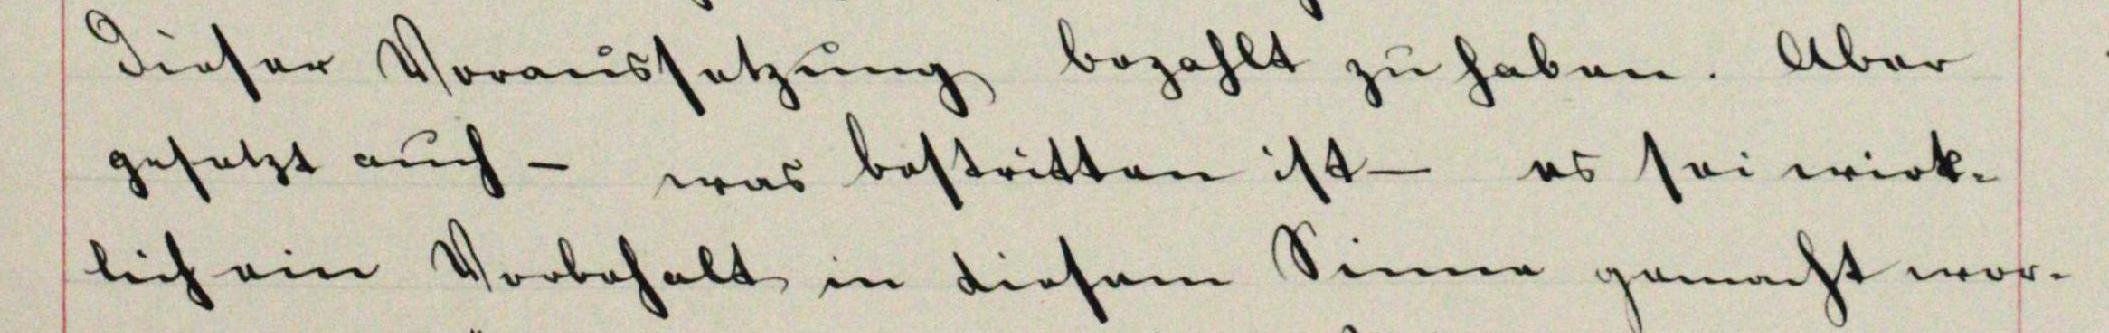 dieser Voraussetzung bezahlt zu haben. Aber
gesetzt auch – was bestritten ist – es sei wirk-
lich ein Vorbehalt in diesem Sinne gemacht wor-